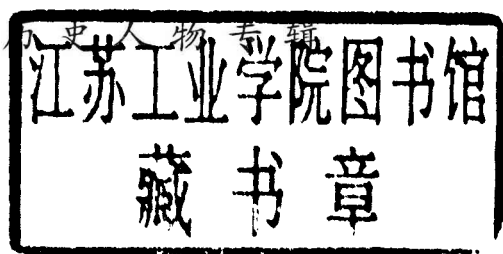 历史人物专辑
江苏工业学院图书馆
藏书章